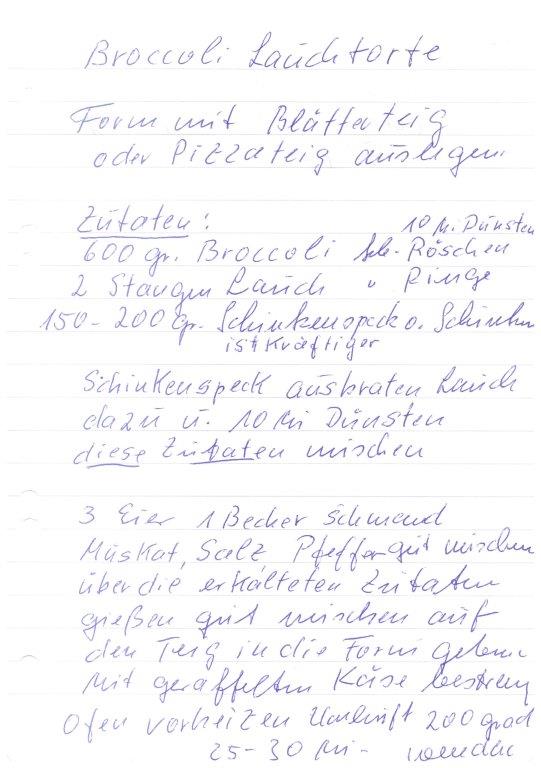 Broccoli Lauchtorte
Form mit Blätterteig
oder Pizzateig auslegen.
Zutaten: 10 Mi. Dünsten
600 gr. Broccoli Röschen
2 Stangen Lauch " Ringe
150-200 gr. Schinkenspeck o. Schinken
ist kräftiger
Schinkenspeck ausbraten Lauch
dazu u. 10 Mi Dünsten
diese Zutaten mischen
3 Eier 1 Becher Schmand
Muskat, Salz Pfeffer gut mischen
über die erkälteten Zutaten
gießen gut mischen auf
den Teig in die Form geben
Mit geraffelten Käse bestreu
Ofen vorheizen Umluft 200 grad
25-30 Mi-